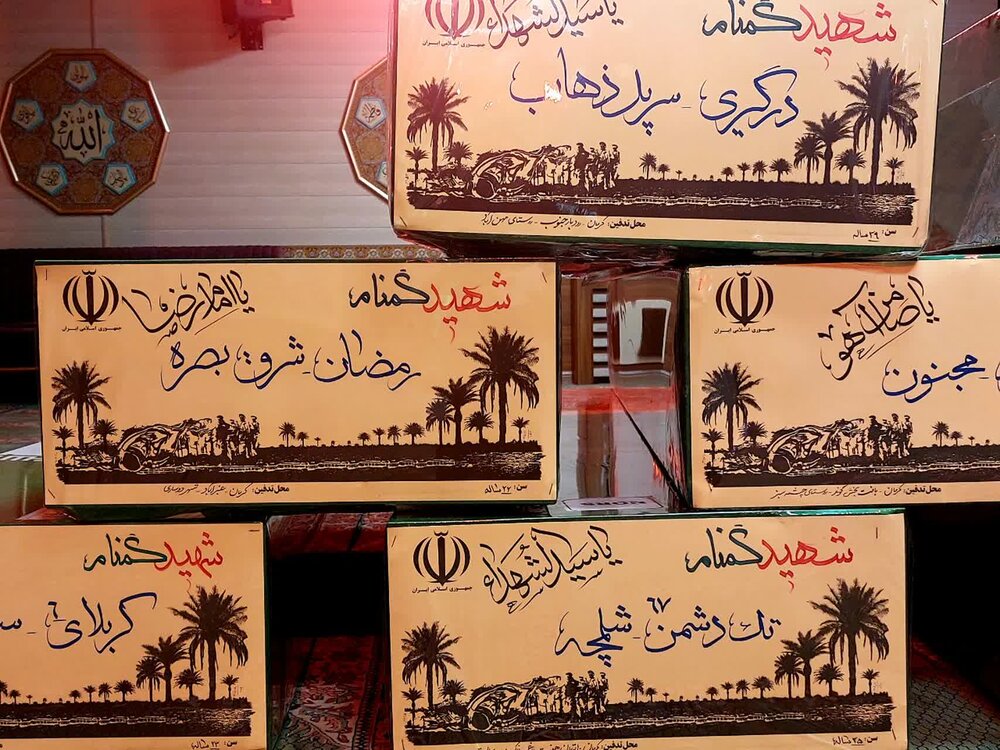 الله
جمهوری اسلامی ایران
یا سیدالشهداء
شهید گمنام
درگیری - سرپل ذهاب
محل تدفین: کرمان - رودبار جنوب - روستای
سن: ۲۹ ساله
جمهوری اسلامی ایران
یا امام رضا
شهید گمنام
رمضان - شرق بصره
محل تدفین: کرمان - عنبرآباد -
سن: ۲۲ ساله
جمهوری اسلامی ایران
یا ضامن آهو
مجنون
محل تدفین: کرمان - بافت بخش گوغر - روستای
شهید گمنام
کربلای ۶ -
سن: ۲۳ ساله
جمهوری اسلامی ایران
یا سیدالشهداء
شهید گمنام
تک دشمن ۶۷ - شلمچه
محل تدفین: کرمان
سن: ۲۵ ساله